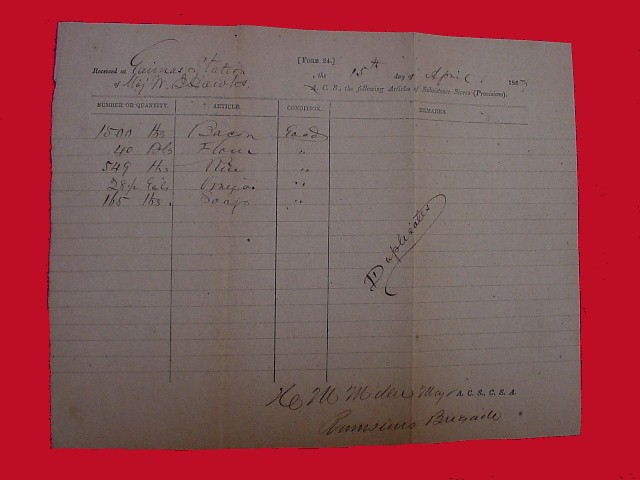 [FORM 24.]
Received at Guineas Station the 15th day of April 186
of Maj W. B A. C. S., the following Articles of Subsistence Stores (Provisions).
NUMBER OR QUANTITY. ARTICLE. CONDITION. REMARKS.
1500 lbs Bacon Good
40 Bbls Flour "
549 lbs Rice "
28½ Gals "
165 lbs. Soap "
Duplicates
H M Miller Maj A. C. S., C. S. A.
Brigade